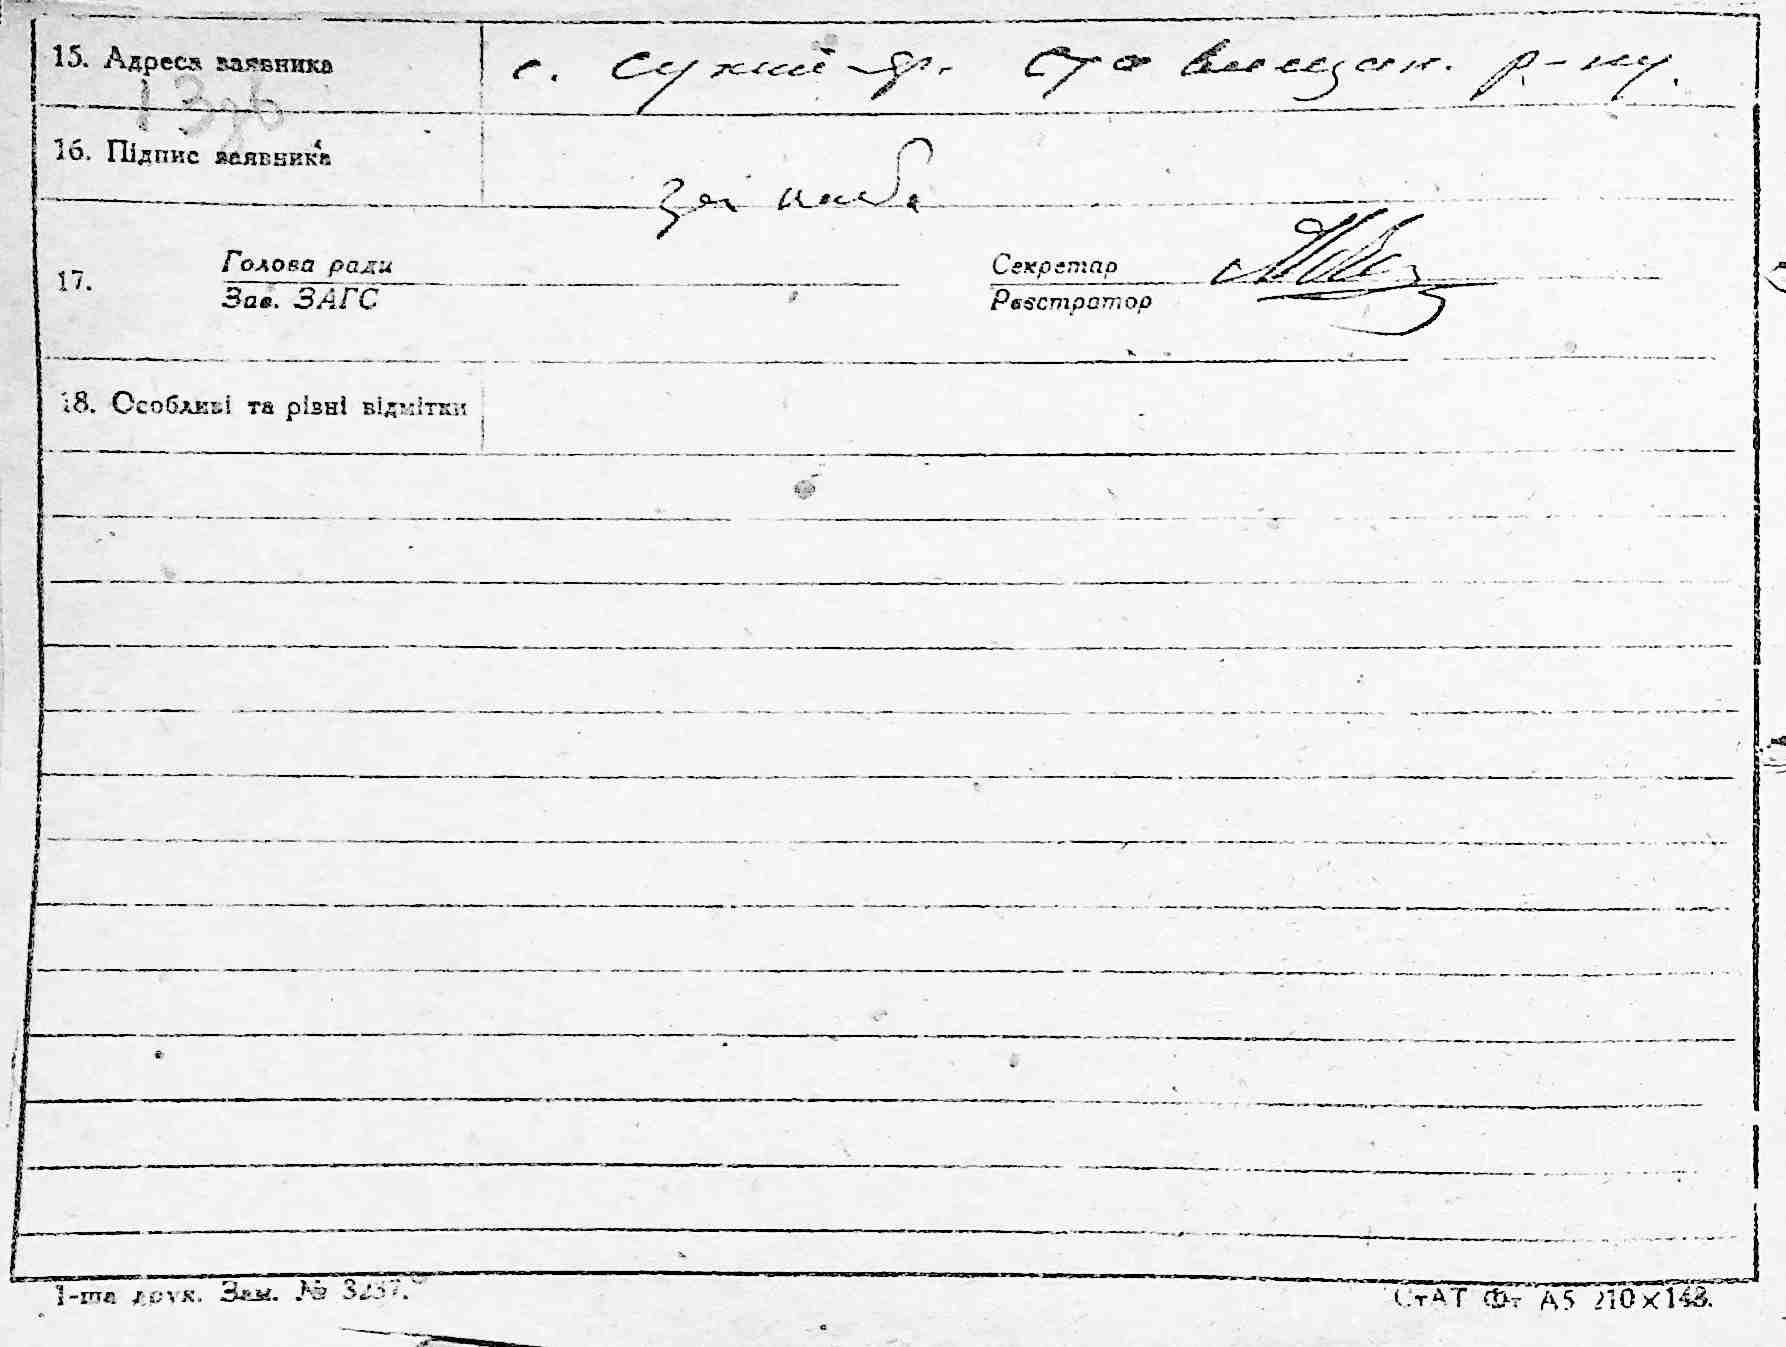 15. Адреса заявника с. Сухий-Яр. Ставищан. р-ну.
16. Підпис заявника
17. Голова ради Секретар
Зав. ЗАГС Реєстратор
18. Особливі та різні відмітки
1-ша друк. Зам. № 3237. СтАТ Фт А5 210×148.